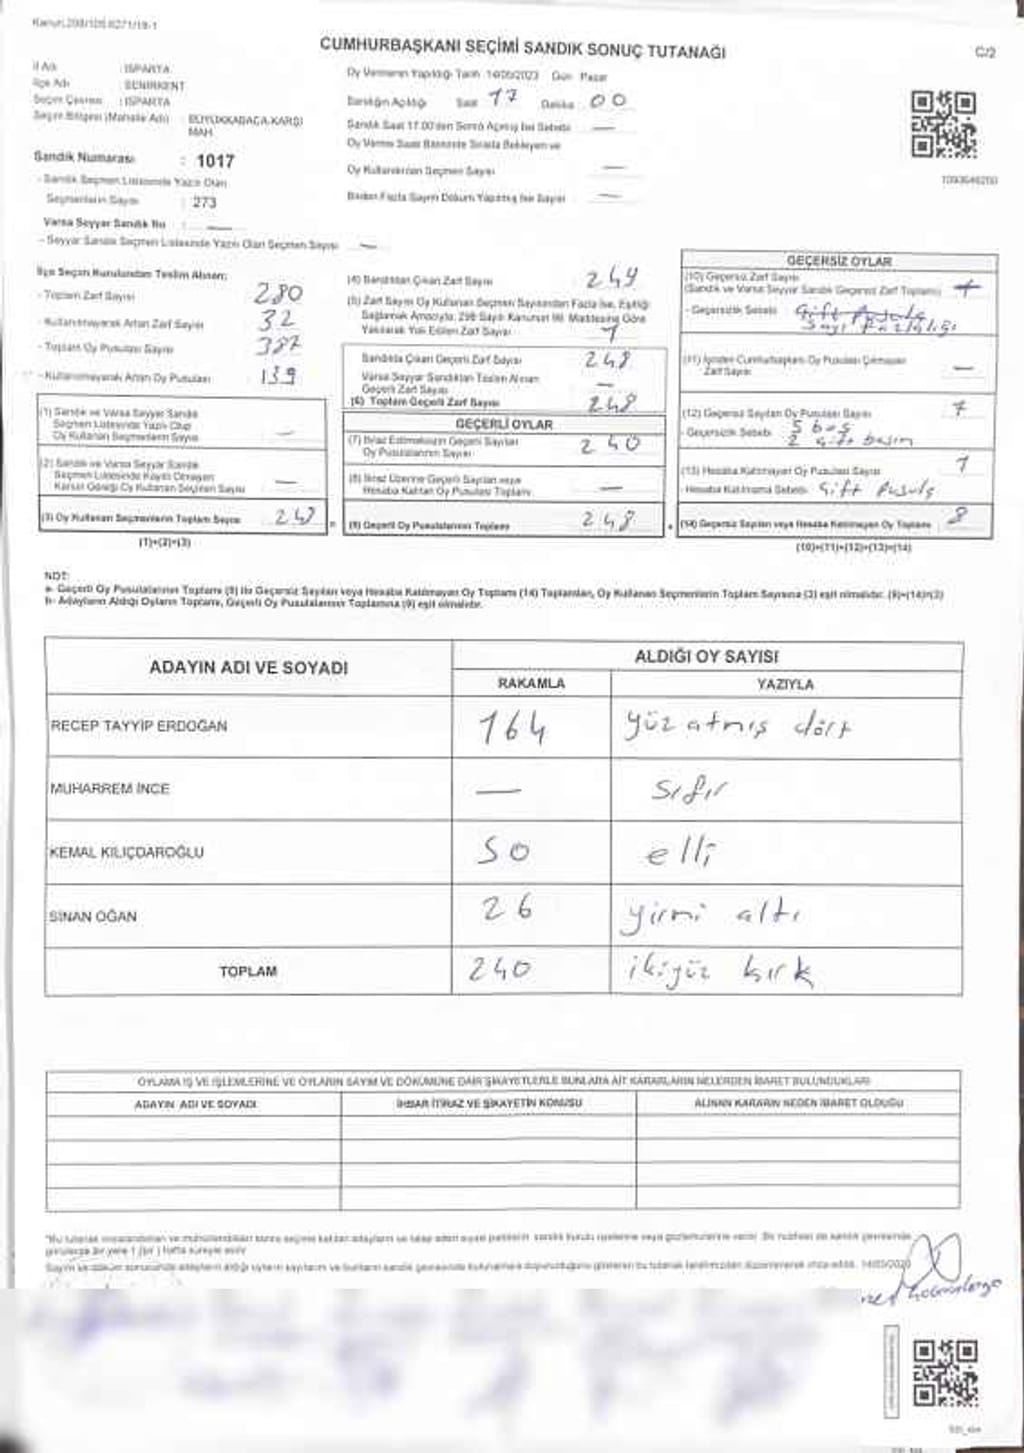 Kanun:298/105,6271/19-1
CUMHURBAŞKANI SEÇİMİ SANDIK SONUÇ TUTANAĞI
C/2
İl Adı : ISPARTA
İlçe Adı : SENİRKENT
Seçim Çevresi : ISPARTA
Seçim Bölgesi (Mahalle Adı) BÜYÜKKABACA-KARŞI MAH.
Sandık Numarası : 1017
- Sandık Seçmen Listesinde Yazılı Olan
Seçmenlerin Sayısı : 273
Varsa Seyyar Sandık No : —
- Seyyar Sandık Seçmen Listesinde Yazılı Olan Seçmen Sayısı —
Oy Vermenin Yapıldığı Tarih 14/05/2023 Gün Pazar
Sandığın Açıldığı Saat 17 Dakika 00
Sandık Saat 17.00'den Sonra Açılmış İse Sebebi —
Oy Verme Saati Bitiminde Sırada Bekleyen ve
Oy Kullandırılan Seçmen Sayısı —
Birden Fazla Sayım Döküm Yapılmış İse Sayısı —
İlçe Seçim Kurulundan Teslim Alınan;
- Toplam Zarf Sayısı 280
- Kullanılmayarak Artan Zarf Sayısı 32
- Toplam Oy Pusulası Sayısı 387
- Kullanılmayarak Artan Oy Pusulası 139
(1) Sandık ve Varsa Seyyar Sandık
Seçmen Listesinde Yazılı Olup
Oy Kullanan Seçmenlerin Sayısı —
(2) Sandık ve Varsa Seyyar Sandık
Seçmen Listesinde Kayıtlı Olmayan
Kanun Gereği Oy Kullanan Seçmen Sayısı —
(3) Oy Kullanan Seçmenlerin Toplam Sayısı 248
(1)+(2)=(3)
(4) Sandıktan Çıkan Zarf Sayısı 249
(5) Zarf Sayısı Oy Kullanan Seçmen Sayısından Fazla İse, Eşitliği
Sağlamak Amacıyla, 298 Sayılı Kanunun 98. Maddesine Göre
Yakılarak Yok Edilen Zarf Sayısı 1
Sandıkta Çıkan Geçerli Zarf Sayısı 248
Varsa Seyyar Sandıktan Teslim Alınan
Geçerli Zarf Sayısı —
(6) Toplam Geçerli Zarf Sayısı 248
GEÇERLİ OYLAR
(7) İtiraz Edilmeksizin Geçerli Sayılan
Oy Pusulalarının Sayısı 240
(8) İtiraz Üzerine Geçerli Sayılan veya
Hesaba Katılan Oy Pusulası Toplamı —
(9) Geçerli Oy Pusulalarının Toplamı 248
GEÇERSİZ OYLAR
(10) Geçersiz Zarf Sayısı
(Sandık ve Varsa Seyyar Sandık Geçersiz Zarf Toplamı)
- Geçersizlik Sebebi Çift Pusula
Sayı Fazlalığı
(11) İçinden Cumhurbaşkanı Oy Pusulası Çıkmayan
Zarf Sayısı —
(12) Geçersiz Sayılan Oy Pusulası Sayısı 7
- Geçersizlik Sebebi 5 boş
2 çift basım
(13) Hesaba Katılmayan Oy Pusulası Sayısı 1
- Hesaba Katılmama Sebebi Çift Pusula
(14) Geçersiz Sayılan veya Hesaba Katılmayan Oy Toplamı 8
(10)+(11)+(12)+(13)=(14)
NOT:
a- Geçerli Oy Pusulalarının Toplamı (9) ile Geçersiz Sayılan veya Hesaba Katılmayan Oy Toplamı (14) Toplamları, Oy Kullanan Seçmenlerin Toplam Sayısına (3) eşit olmalıdır. (9)+(14)=(3)
b- Adayların Aldığı Oyların Toplamı, Geçerli Oy Pusulalarının Toplamına (9) eşit olmalıdır.
ADAYIN ADI VE SOYADI
ALDIĞI OY SAYISI
RAKAMLA YAZIYLA
RECEP TAYYİP ERDOĞAN 164 yüz atmış dört
MUHARREM İNCE — sıfır
KEMAL KILIÇDAROĞLU 50 elli
SİNAN OĞAN 26 yirmi altı
TOPLAM 240 ikiyüz kırk
OYLAMA İŞ VE İŞLEMLERİNE VE OYLARIN SAYIM VE DÖKÜMÜNE DAİR ŞİKAYETLERLE BUNLARA AİT KARARLARIN NELERDEN İBARET BULUNDUKLARI
ADAYIN ADI VE SOYADI İHBAR İTİRAZ VE ŞİKAYETİN KONUSU ALINAN KARARIN NEDEN İBARET OLDUĞU